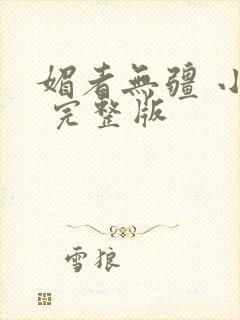 媚者無疆 小
完整版
雪狼